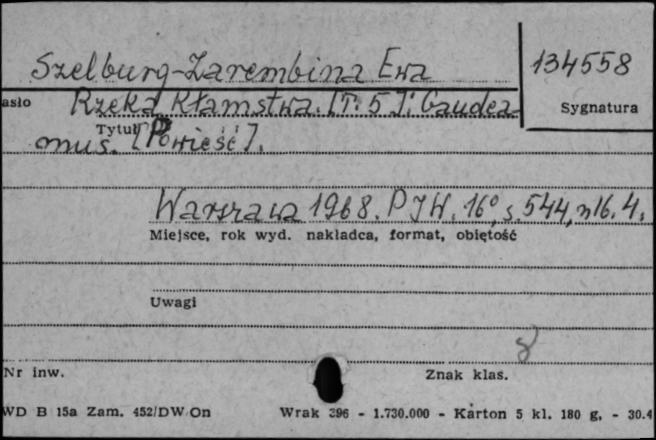 Szelburg-Zarembina Ewa
134558
asło
Rzeka Kłamstwa. [T. 5]: Gaudea-
Sygnatura
Tytuł
mus. [Powieść].
Warszawa 1968. PIW. 16°, s. 544, nlb. 4.
Miejsce, rok wyd. nakładca, format, objętość
Uwagi
8
Nr inw.
Znak klas.
WD B 15a Zam. 452/DW/On
Wrak 396 - 1.730.000 - Karton 5 kl. 180 g, - 30.4